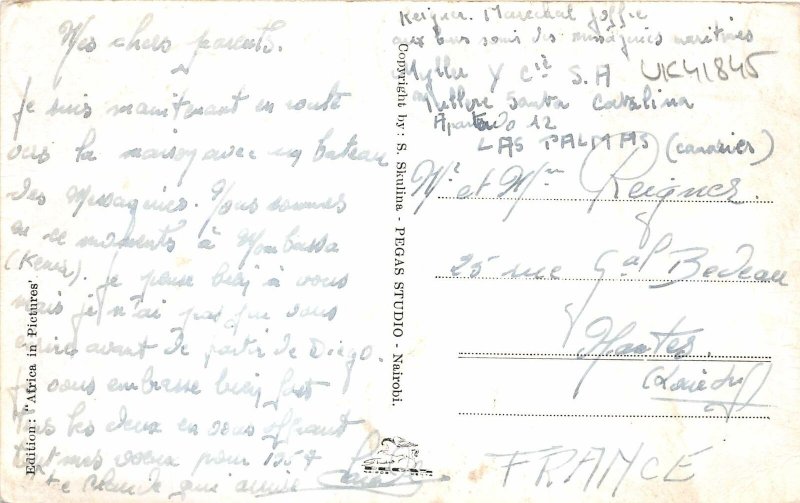 Mes chers parents.
Je suis maintenant en route
vers la maison avec un bateau
des Messageries. Nous sommes
en ce moments à Mombassa
(Kenia). Je pense bien à vous
mais je n'ai pas pu vous
écrire avant de partir de Diego.
Je vous embrasse bien fort
tous les deux en vous offrant
tout mes voeux pour 1957
qui arrive
Edition: "Africa in Pictures"
Copyright by: S. Skulina - PEGAS STUDIO - Nairobi.
Reigner. Marechal Joffre
aux bons soins des messageries maritimes
Y Cie S.A UK41845
Santa Catalina
Apartado 12
LAS PALMAS (canaries)
Mr et Mme Reigner.
25 rue Gal Bedeau
Nantes.
(Loire Inf)
FRANCE